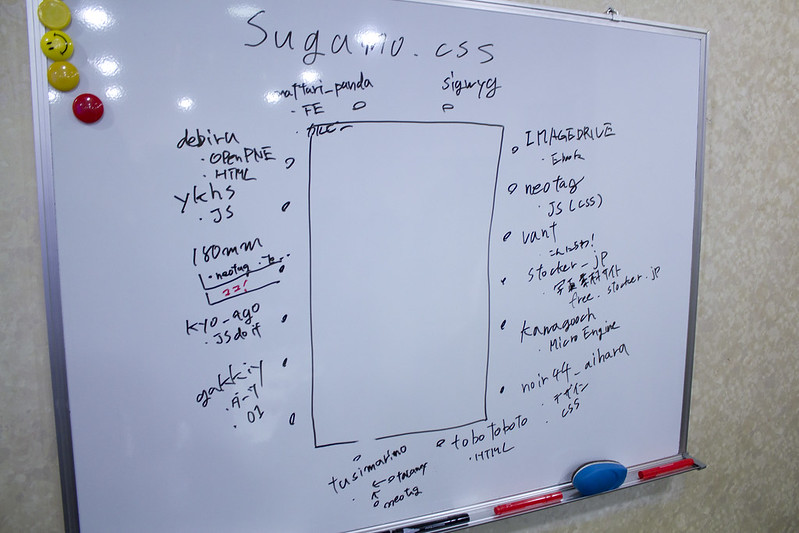 Sugamo.css
mattari_panda
・FE
sigwyg
debiru
・OpenPNE
・HTML
ykhs
・JS
180mm
・neotag
ココ!
kyo_ago
・JSdoit
gakkiy
・オーフ
・01
IMAGEDRIVE
neotag
・JS (CSS)
vant
こんにちわ!
stocker_jp
・写真素材サイト
free.stocker.jp
kanagooch
・MicroEngine
noir44_aihara
・デザイン
・CSS
tobotoboto
・HTML
tusimarino
neotag